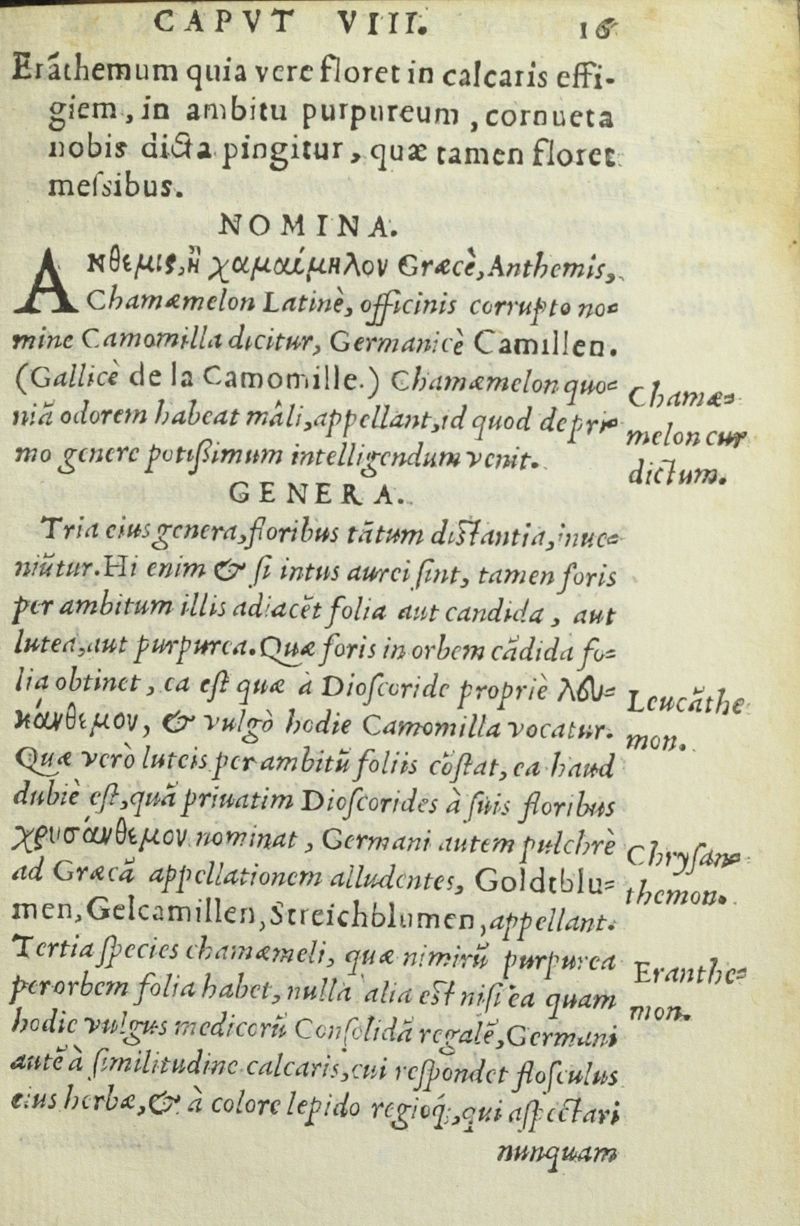 CAPVT VIII. 16
Erãthemum quia vere floret in calcaris effi-
giem, in ambitu purpureum, cornueta
nobis dicta pingitur, quæ tamen floret
meſsibus.
NOMINA.
ΑΝθεμις, ἢ χαμαίμηλον Græcè, Anthemis,
Chamæmelon Latinè, officinis corrupto no-
mine Camomilla dicitur, Germanicè Camillen.
(Gallicè de la Camomille.) Chamæmelon quo-
niã odorem habeat mâli, appellant, id quod de pri-
mo genere potiſsimum intelligendum venit.
Chamæ-
melon cur
dictum.
GENERA.
Tria eius genera, floribus tãtum diſtantia, inue-
niũtur. Hi enim & ſi intus aurei ſint, tamen foris
per ambitum illis adiacẽt folia aut candida, aut
lutea, aut purpurea. Quæ foris in orbem cãdida fo-
lia obtinet, ea eſt quæ à Dioſcoride propriè λευ-
κάνθεμον, & vulgò hodie Camomilla vocatur.
Leucãthe
mon.
Quæ verò luteis per ambitũ foliis cõſtat, ea haud
dubiè eſt, quã priuatim Dioſcorides à ſuis floribus
χρυσάνθεμον nominat, Germani autem pulchrè
ad Græcã appellationem alludentes, Goldtblu-
men, Gelcamillen, Streichblumen, appellant.
Chryſan-
themon.
Tertia ſpecies chamæmeli, quæ nimirũ purpurea
per orbem folia habet, nulla alia eſt niſi ea quam
hodie vulgus medicorũ Conſolidã regalẽ, Germani
autẽ à ſimilitudine calcaris, cui reſpondet floſculus
eius herbæ, & à colore lepido regioq́;, qui aſpectari
Eranthe-
mon.
nunquam